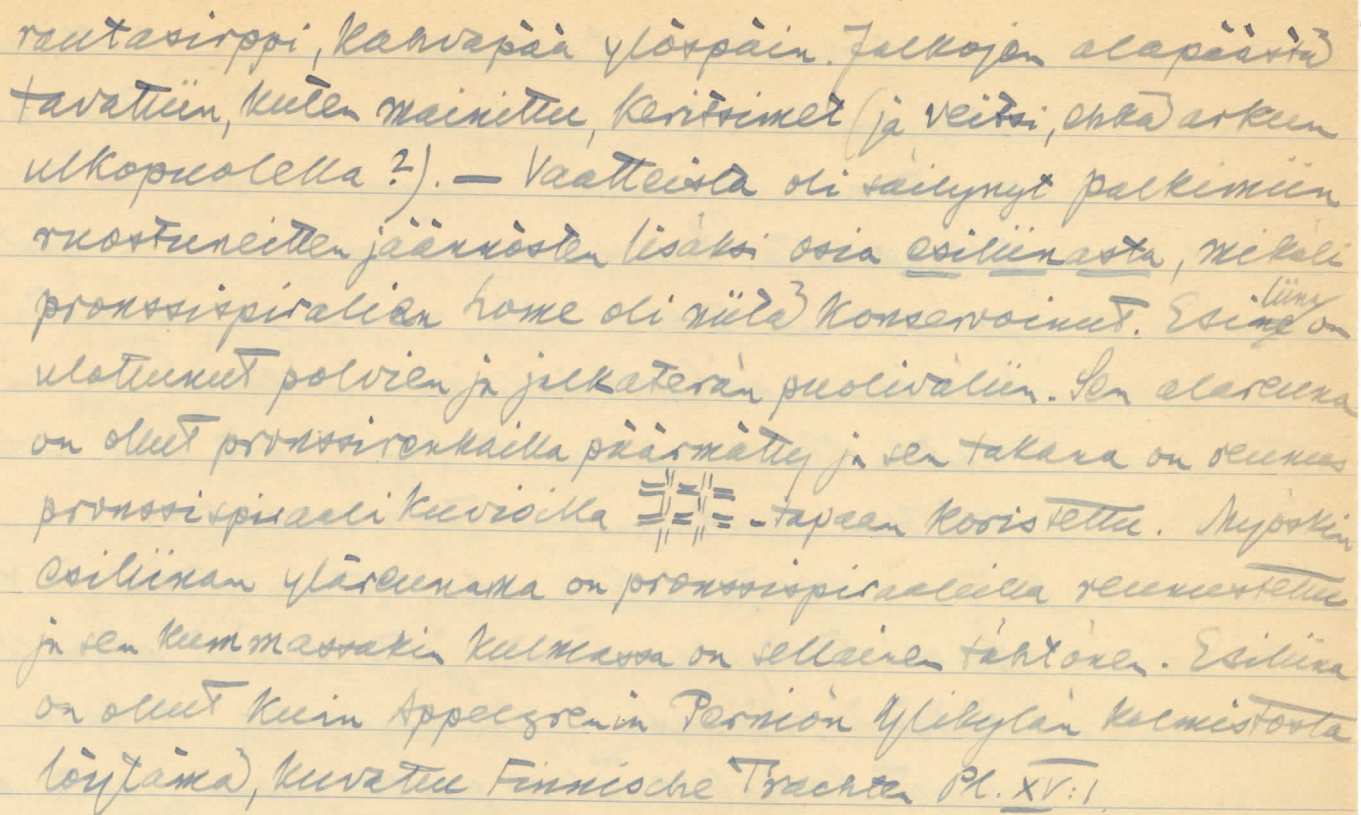 rautasirppi, kahvapää ylöspäin. Jalkojen alapäästä
tavattiin, kuten mainittu, keritsimet (ja veitsi, ehkä arkun
ulkopuolella?). — Vaatteista oli säilynyt palkimiin
ruostuneitten jäännösten lisäksi osia esiliinasta, mikäli
pronssispiralien home oli niitä konservoinut. Esiliina on
ulottunut polvien ja jalkaterän puoliväliin. Sen alareuna
on ollut pronssirenkailla päärmätty ja sen takana on reunus
pronssispiraalikuvioilla -tapaan koristettu. Myöskin
esiliinan yläreunama on pronssispiraaleilla reunustettu
ja sen kummassakin kulmassa on sellainen tähtönen. Esiliina
on ollut kuin Appelgrenin Perniön Yliskylän kalmistosta
löytämä, kuvattu Finnische Trachten Pl. XV:1